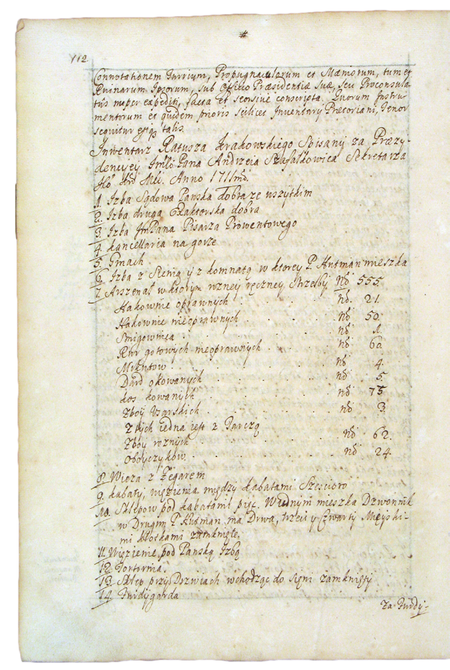 112
Connotationem Turrium, Propugnaculorum et Moeniorum, tum et
Ruinarum Ipsorum, sub Officio Praesidentiae Suae, seu Proconsula
tus nuper expediti, facta et seorsive conscripta. Quorum Instru-
mentorum et quidem prioris scilicet Inventary Praetoriani, Tenor
sequitur talis.
Inwentarz Ratusza Krakowskiego Spisany za Prezy-
dencyey Pana Andrzeia Sekretarza
Anno 1711
1 Izba Sądowa Pańska dobra ze wszytkim
2 Izba druga dobra
3 Izba Pana Pisarza Prowentowego
4 Kancellaria na gorze
5 Gmach
6 Izba z Sienią y z komnatą w ktorey P. Hutman mieszka
7 Arszenał w ktorym rozney ręczney Strzelby No 555
Hakownic oprawnych No 21
Hakownic nieoprawnych No 50
Smigownica No 1
Rur gotowych nieoprawnych No 60
No 4
Dard okowanych No 5
kos kowanych No 75
Zbroi Usarskich No 3
Z tych iedna iest z Tarczą
Zbroi roznych No 62
Obóyczyków No 24
8 Wieża z Zegarem
9 kabaty, więzienia między kabatami Szescioro
10 Sklepow pod kabatami pięć. W iednym mieszka Dzwonnik
w Drugim P. Hutman ma Drwa, trzeci y czwarty Mieyski-
mi kłotkami zamknięte
11 Więzienie pod Pańską Izbą
12 Tortornia
13 Sklep przy Drzwiach wchodząc do Sieni zamknięty
14 Kurdygarda
Za Kurdy-